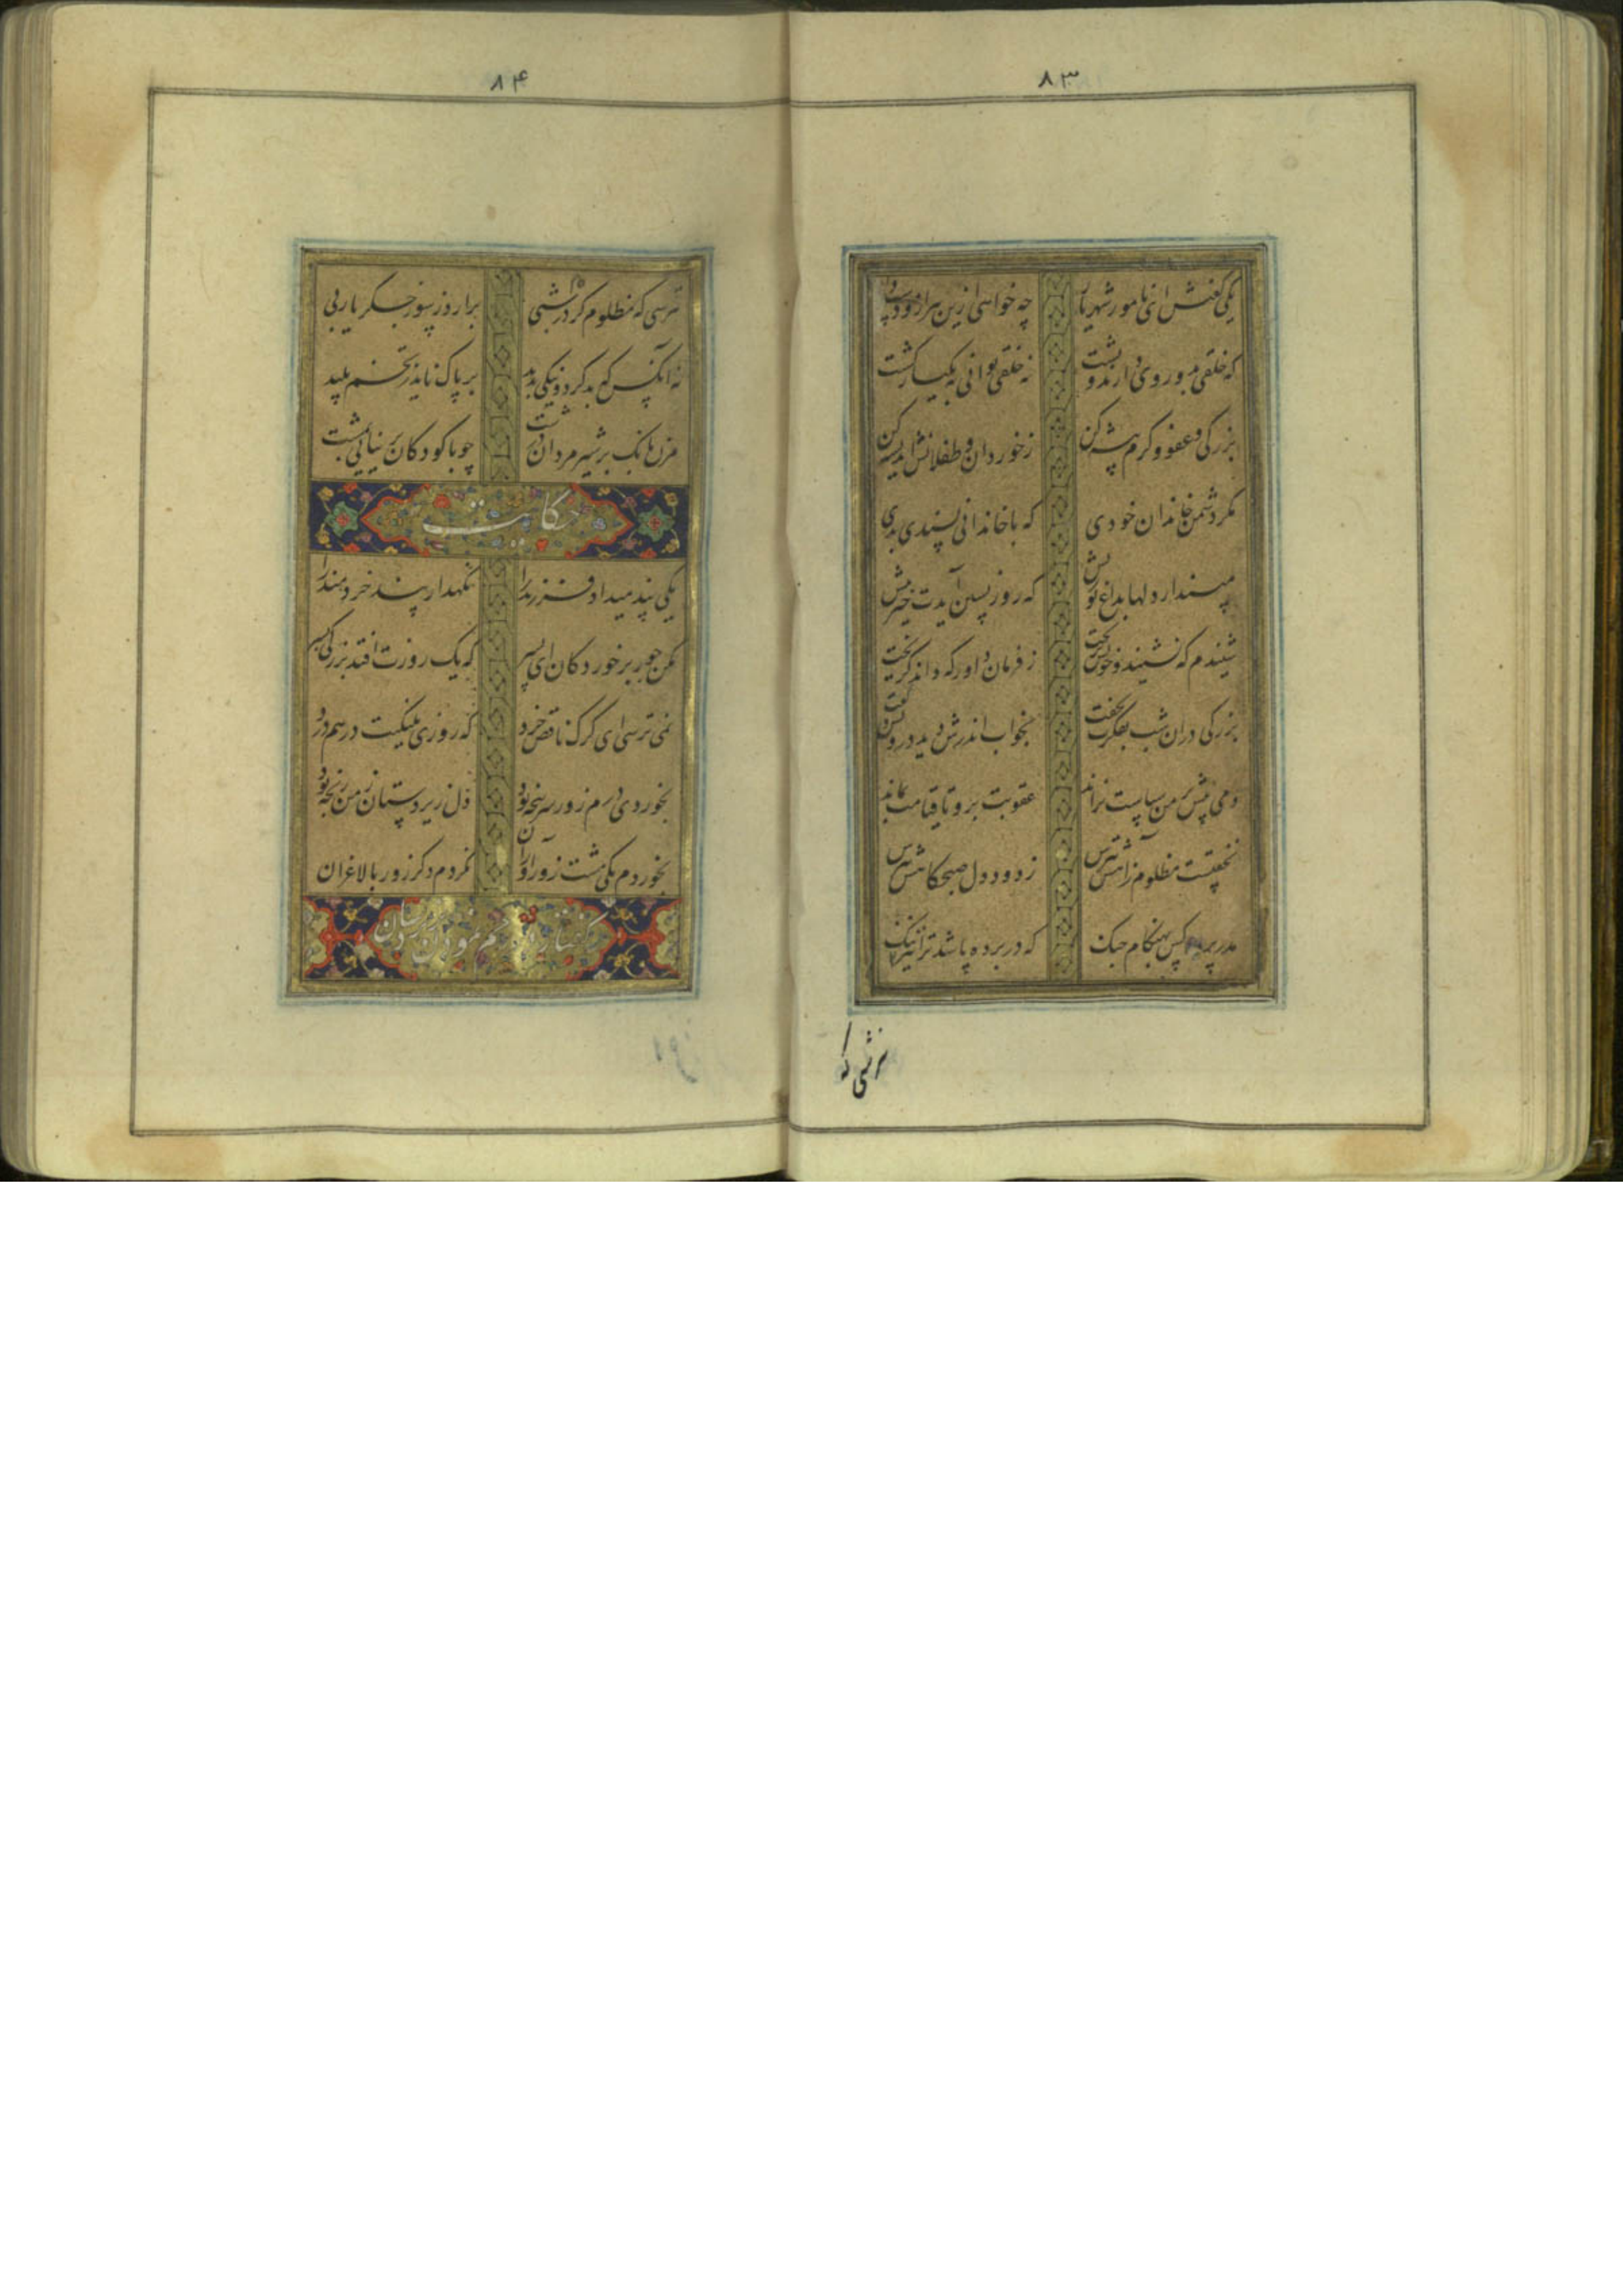 ۸۳
یکی گفتش ای نامور شهریار چه خواهی ازین مرد
که خلقی بدو روی دارند و پشت نه خلقی توانی به یکبار کشت
بزرگی و عفو و کرم پیشه کن ز خوردان و طفلانش اندیشه کن
مگر دشمن خاندان خودی که با خاندانی پسندی بدی
مپندار دلها بداغ تو ریش که روز پسین آیدت خیر پیش
شنیدم که نشنید و خونش بریخت ز فرمان داور که داند گریخت
بزرگی دران شب بفکرت بخفت بخواب اندرش دید درویش و گفت
دمی پیش بر من سیاست نراند عقوبت برو تا قیامت بماند
نخفتست مظلوم زاهش بترس ز دود دل صبحگاهش بترس
مدر پرده کس بهنگام جنگ که در پرده باشد ترا نیز ننگ
نترسی که
۸۴
نترسی که مظلوم گردد شبی برارد ز سوز جگر یاربی
نه آنکس که بد کرد و نیکی بدید بر پاک ناید ز تخم پلید
مزن بانک بر شیرمردان درشت چو با کودکان بر نیایی بمشت
حکایت
یکی پند میداد فرزند را نگهدار پند خردمند را
مکن جور بر خوردکان ای پسر که یک روزت افتد بزرگی بسر
نمی ترسی ای گرگ ناقص خرد که روزی پلنگیت درهم درد
بخوردی درم زور سرپنجه بود دل زیردستان ز من رنجه بود
بخوردم یکی مشت زورآوران نکردم دگر زور با لاغران
گفتار